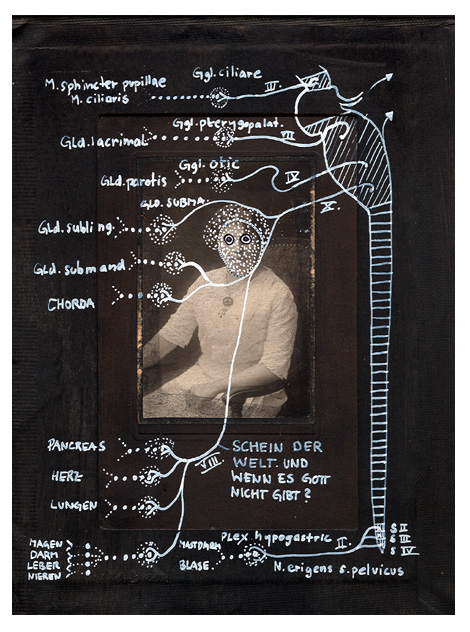 Ggl. ciliare
M. sphincter pupillae
M. ciliaris
III.
Ggl. pterygopalat.
Gld. lacrimal
VII
Ggl. otic
Gld. parotis
IV
GLD. SUBMA
X.
Gld. subling.
Gld. submand
CHORDA
PANCREAS
HERZ
LUNGEN
VIII.
SCHEIN DER
WELT. UND
WENN ES GOTT
NICHT GIBT?
MAGEN
DARM
LEBER
NIEREN
MASTDARM
BLASE
Plex. hypogastric
II.
S II
S III
S IV
N. erigens s. pelvicus